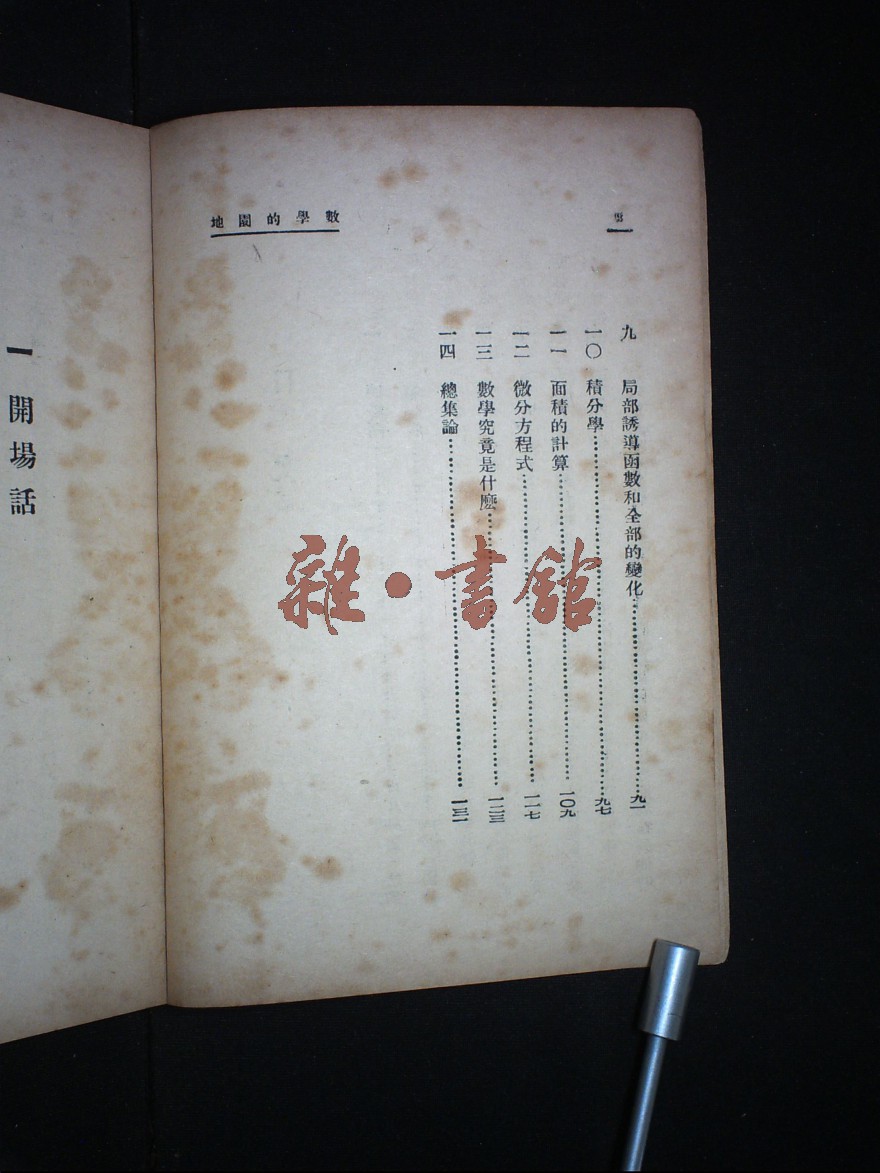 數學的園地
九 局部誘導函數和全部的變化……九一
一〇 積分學……九七
一一 面積的計算……一〇九
一二 微分方程式……一一七
一三 數學究竟是什麼……一二三
一四 總集論……一三一
一 開場話
雜·書館